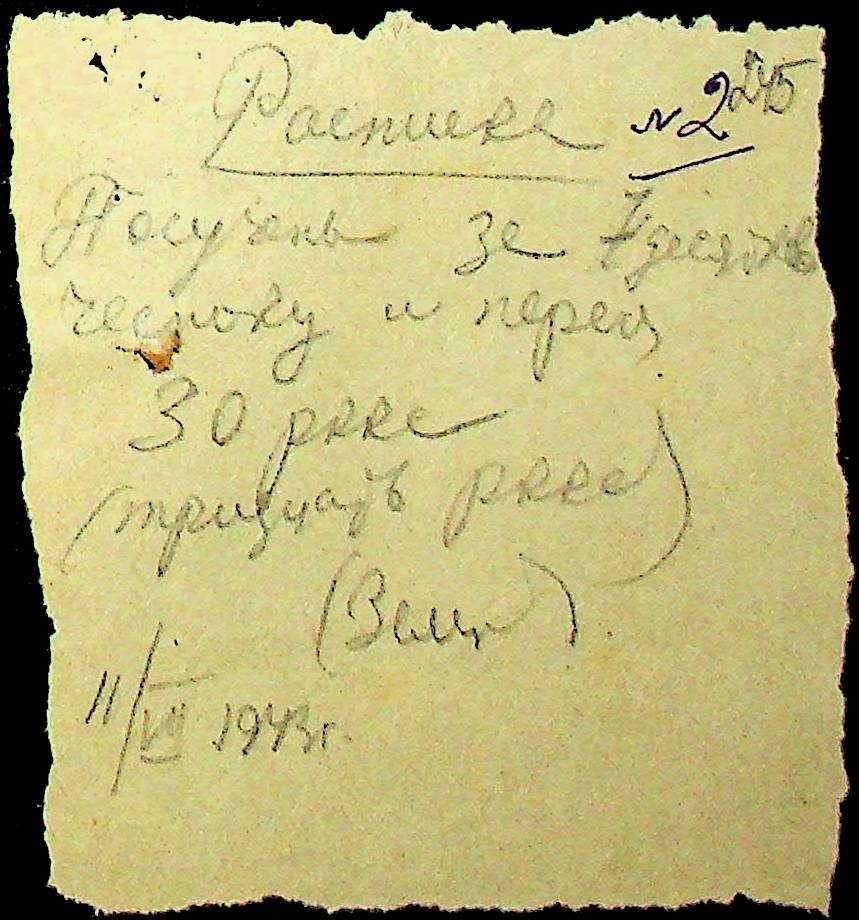 Расписка №2
Получень за 7 десятков
чесноку и перец
30 рккс
(тридцать рккс)
11/VII 1943г.